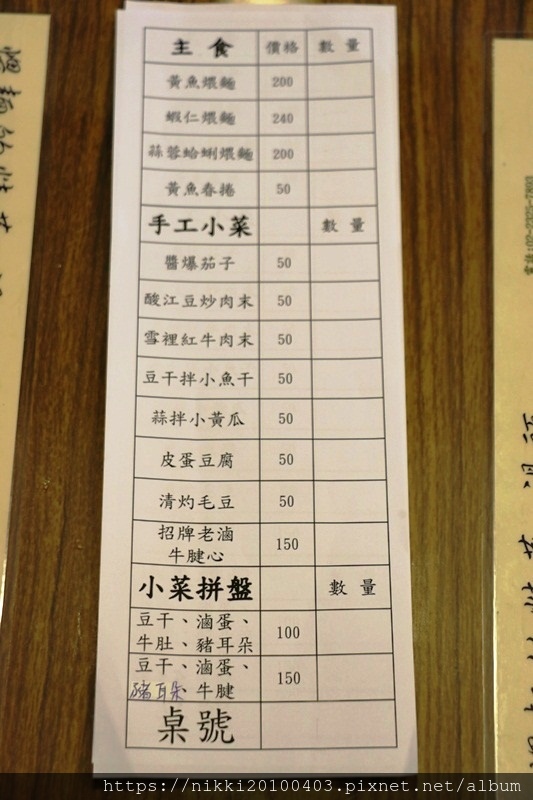 主食 價格 數量
黃魚煨麵 200
蝦仁煨麵 240
蒜蓉蛤蜊煨麵 200
黃魚春捲 50
手工小菜 數量
醬爆茄子 50
酸江豆炒肉末 50
雪裡紅牛肉末 50
豆干拌小魚干 50
蒜拌小黃瓜 50
皮蛋豆腐 50
清灼毛豆 50
招牌老滷
牛腱心 150
小菜拼盤 數量
豆干、滷蛋、
牛肚、豬耳朵 100
豆干、滷蛋、
豬耳朵、牛腱 150
桌號
https://nikki20100403.pixnet.net/album